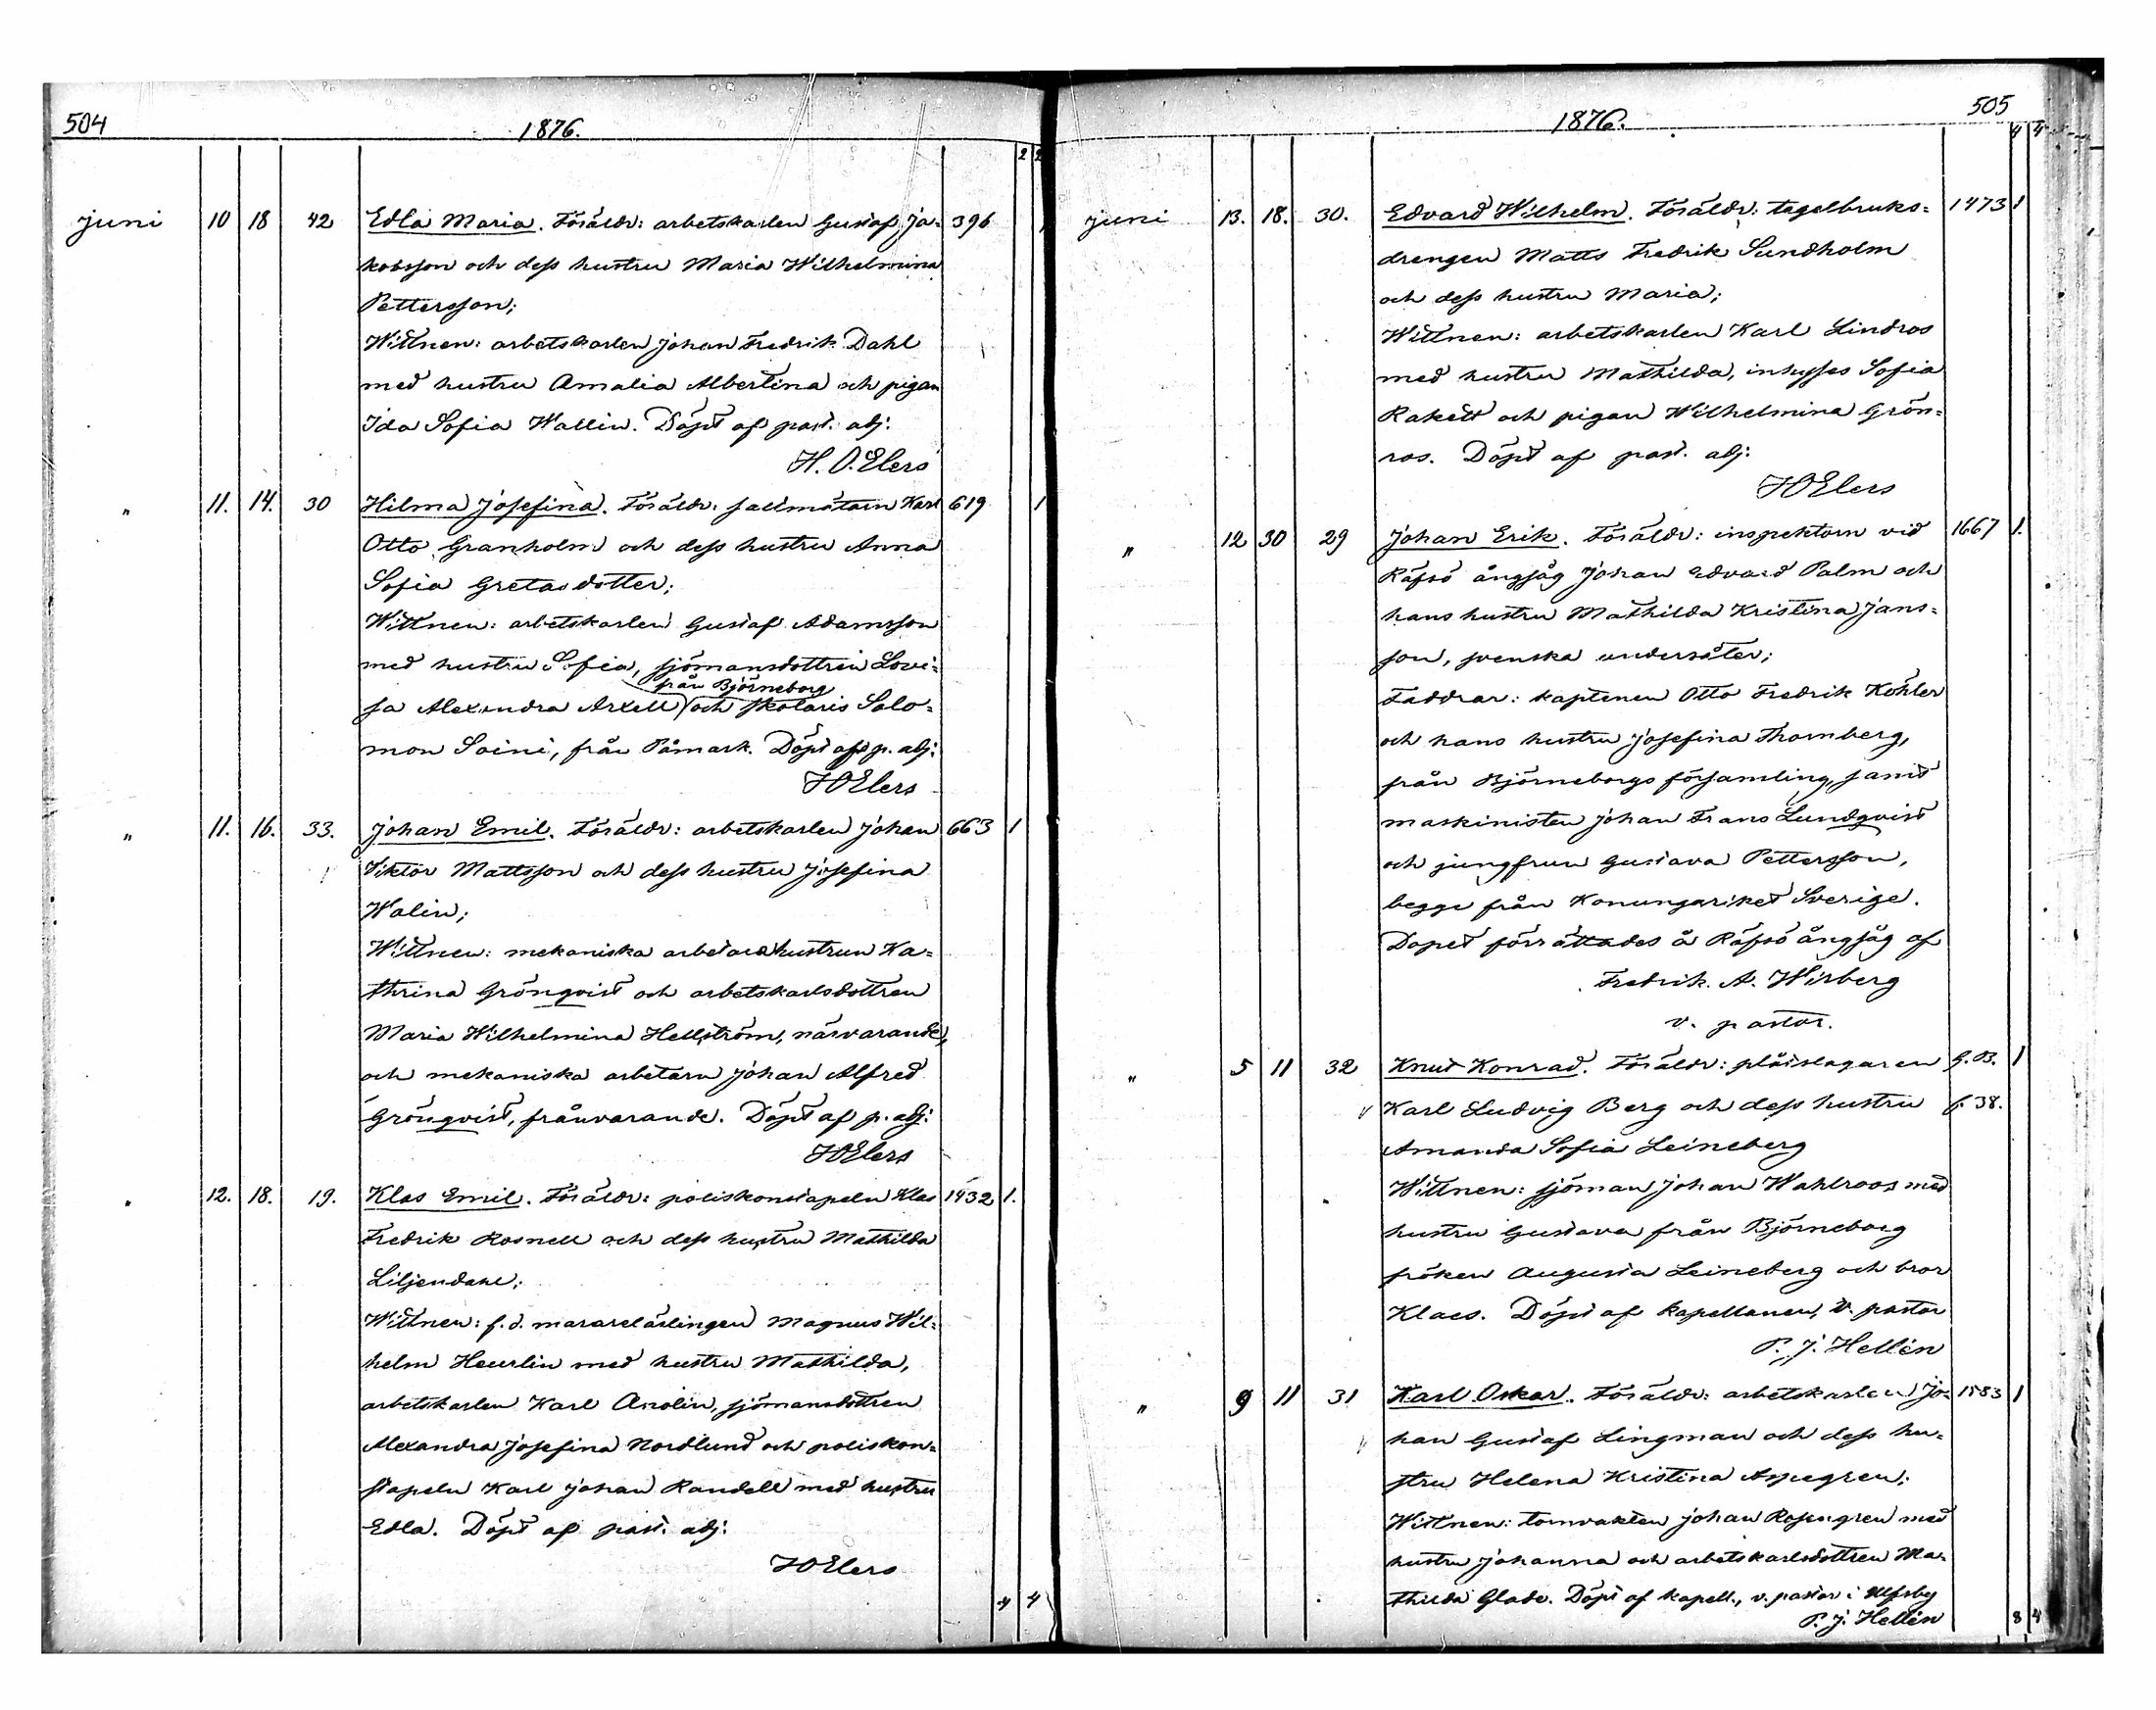 504
1876.
2 2
juni 10 18 42 Edla Maria. Föräldr: arbetskarlen Gustaf Ja= 396 1
kobsson och dess hustru Maria Wilhelmina
Pettersson;
Wittnen: arbetskarlen Johan Fredrik Dahl
med hustru Amalia Albertina och pigan
Ida Sofia Wallin. Döpt af past. adj:
H. O. Elers
" 11. 14. 30 Hilma Josefina. Föräldr: saltmätarn Karl 619 1
Otto Granholm och dess hustru Anna
Sofia Gretasdotter;
Wittnen: arbetskarlen Gustaf Adamsson
med hustru Sofia, sjömansdottren Lovi=
från Björneborg
sa Alexandra Axell och skolaris Salo=
mon Soini, från Påmark. Döpt af p. adj:
HOElers
" 11. 16. 33. Johan Emil. Föräldr: arbetskarlen Johan 663 1
Viktor Mattsson och dess hustru Josefina
Walin;
Wittnen: mekaniska arbetarehustrun Ka=
thrina Grönqvist och arbetskarlsdottren
Maria Wilhelmina Hellström, närvarande,
och mekaniska arbetarn Johan Alfred
Grönqvist, frånvarande. Döpt af p. adj:
HOElers
" 12. 18. 19. Klas Emil. Föräldr: poliskonstapeln Klas 1432 1.
Fredrik Rosnell och dess hustru Mathilda
Liljendahl;
Wittnen: f. d. Magnus Wil=
helm Heurlin med hustru Mathilda,
arbetskarlen Karl Anolin, sjömansdottren
Alexandra Josefina Nordlund och poliskon=
stapeln Karl Johan Randell med hustru
Edla. Döpt af past. adj:
HOElers
4 4
505
1876.
4 4
juni 13. 18. 30. Edvard Wilhelm. Föräldr: tegelbruks= 1473 1
drengen Matts Fredrik Sundholm
och dess hustru Maria;
Wittnen: arbetskarlen Karl Lindros
med hustru Mathilda, inhyses Sofia
Rakett och pigan Wilhelmina Grön=
ros. Döpt af past. adj:
HOElers
" 12 30 29 Johan Erik. Föräldr: inspektorn vid 1667 1.
Räfsö ångsåg Johan Edvard Palm och
hans hustru Mathilda Kristina Jans=
son, svenska undersåter;
Faddrar: kaptenen Otto Fredrik Köhler
och hans hustru Josefina Thornberg,
från Björneborgs församling, samt
maskinisten Johan Frans Lundqvist
och jungfrun Gustava Pettersson,
begge från Konungariket Sverige.
Dopet förrättades å Räfsö ångsåg af
Fredrik. A. Wirberg
v. pastor.
" 5 11 32 Knut Konrad. Föräldr: plåtslagaren G. B. 1
Karl Ludvig Berg och dess hustru f. 38.
Amanda Sofia Leineberg
Wittnen: sjöman Johan Wahlroos med
hustru Gustava från Björneborg
fröken Augusta Leineberg och bror
Klaes. Döpt af kapellanen, v. pastor
P. J. Hellén
" 9 11 31 Karl Oskar. Föräldr: arbetskarlen Jo= 1583 1
han Gustaf Lingman och dess hu=
stru Helena Kristina Aspegren;
Wittnen: tornvakten Johan Rosengren med
hustru Johanna och arbetskarlsdottren Ma=
thilda Glade. Döpt af kapell., v. pastor i Ulfsby
P. J. Hellén
8 4